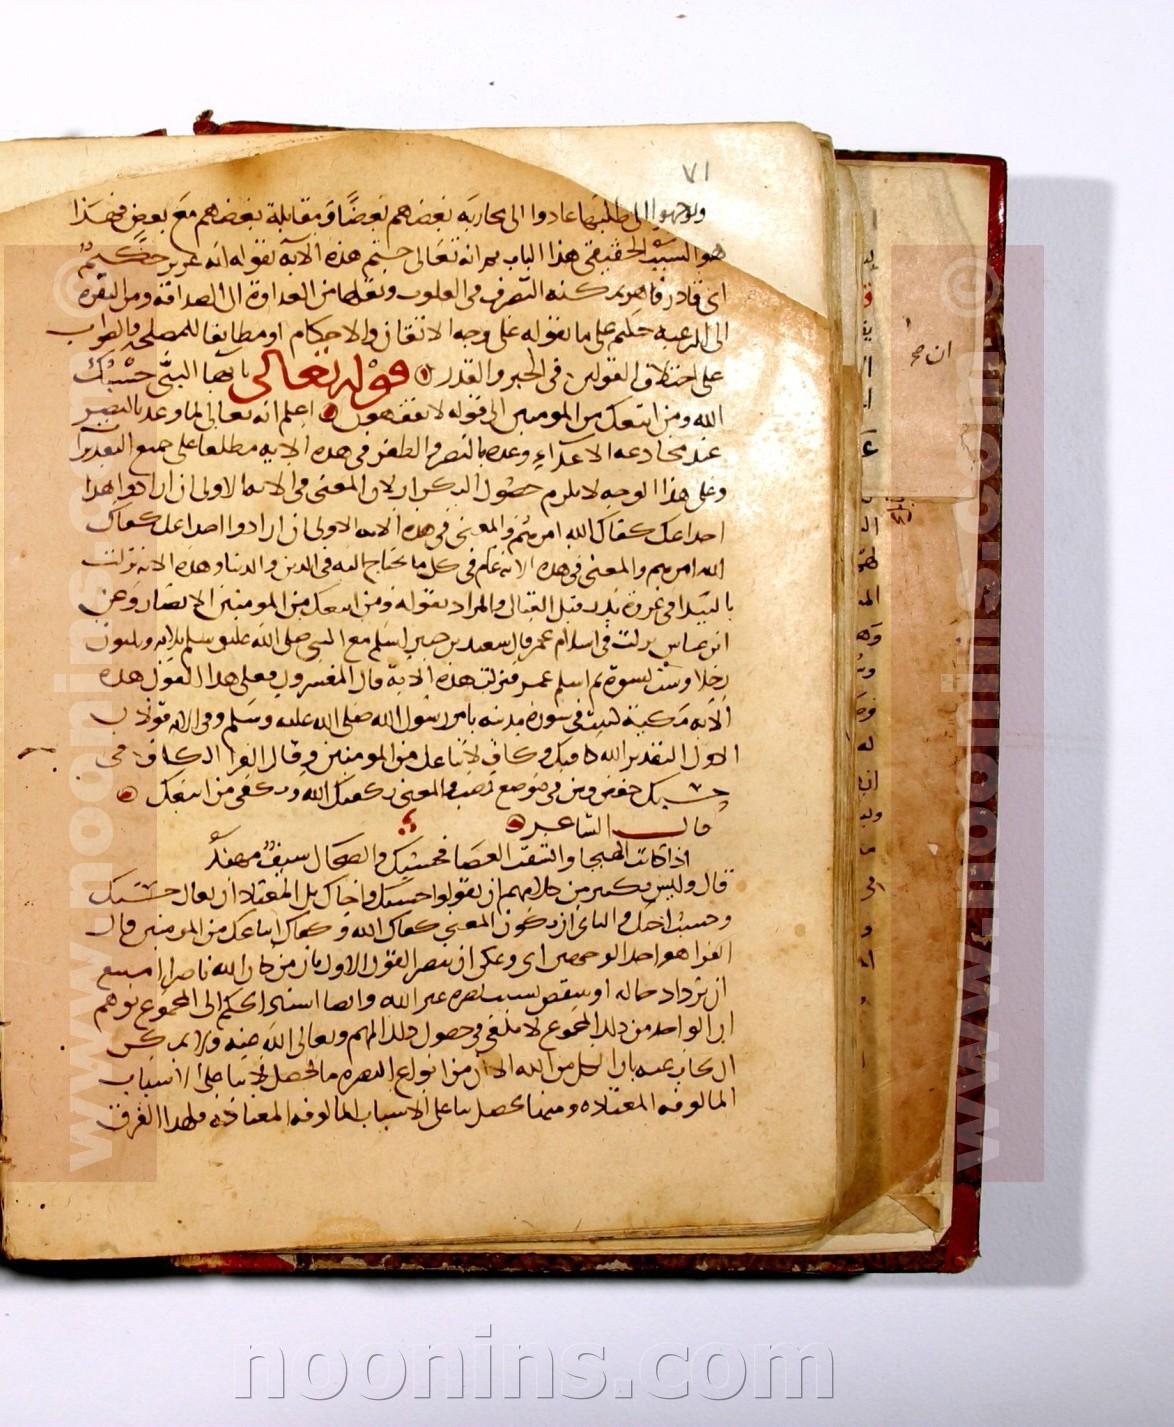 ٧١
وتوجهوا الى طلبها عادوا الى محاربة بعضهم بعضًا ومقابلة بعضهم مع بعض فهذا
هو السبب الحقيقي هذا الباب ثم انه تعالى ختم هذه الآية بقوله انه عزيز حكيم
اى قادر قاهر يمكنه التصرف فى القلوب ونقلها من العداوة الى الصداقة ومن النفرة
الى الرغبه حكيم على ما يقوله على وجه الاتقان والاحكام او مطابقا للمصلحه والصواب
على اختلاف القولين فى الجبر والقدر قوله تعالى يا ايها النبى حسبك
الله ومن اتبعك من المومنين الى قوله لا يفقهون اعلم انه تعالى لما وعده بالنصر
عند مخادعه الاعداء وعده بالنصر والظفر فى هذه الايه مطلقا على جميع التقديرات
وعلى هذا الوجه لا يلزم حصول التكرار لان المعنى فى الايه الاولى ان ارادوا
خداعك كفاك الله امرهم والمعنى فى هذه الايه
الله امرهم والمعنى فى هذه الايه عام فى كل ما يحتاج اليه فى الدين والدنيا وهذه الايه نزلت
بالبيدا فى غزوة بدر قبل القتال والمراد بقوله ومن اتبعك من المومنين الانصار وعن
ابن عباس نزلت فى اسلام عمر قال سعيد بن جبير اسلم مع النبى صلى الله عليه وسلم ثلاثه وثلثون
رجلا وست نسوة ثم اسلم عمر فنزلت هذه الاية قال المفسرون فعلى هذا القول هذه
الآيه مكية كتبت فى سورة مدنيه بامر رسول الله صلى الله عليه وسلم وفى الايه قولان
الاول التقدير الله كافيك وكافى اتباعك من المومنين وقال الفرا الكاف فى
حسبك خفض ومن فى موضع نصب والمعنى يكفيك الله ويكفى من اتبعك
قال الشاعر
اذا كانت الهيجا وانشقت العصا فحسبك والضحاك سيف مهند
قال وليس بكثير من كلامهم ان يقولوا حسبك واخاك بل المعتاد ان يقال حسبك
وحسب اخيك والثانى ان يكون المعنى كفاك الله وكفاك اتباعك من المومنين قال
الفرا هو احد الوجهين اى ويمكن ان ينصر القول الاول بان من كان الله ناصره امتنع
ان يزداد حاله او ينقص بسبب نصره غير الله وايضا اسناد الحكم الى المجموع يوهم
ان الواحد من ذلك المجموع لا يكفى فى حصول ذلك المهم وتعالى الله عنه ويمكن
ان يجاب عنه بان الكل من الله الا ان من انواع النصره ما يحصل لا بنا على الاسباب
المالوفه المعتاده ومنها يحصل بنا على الاسباب المالوفه المعتاده فلهذا الفرق
ان صح
www.noonins.com
www.noonins.com
noonins.com